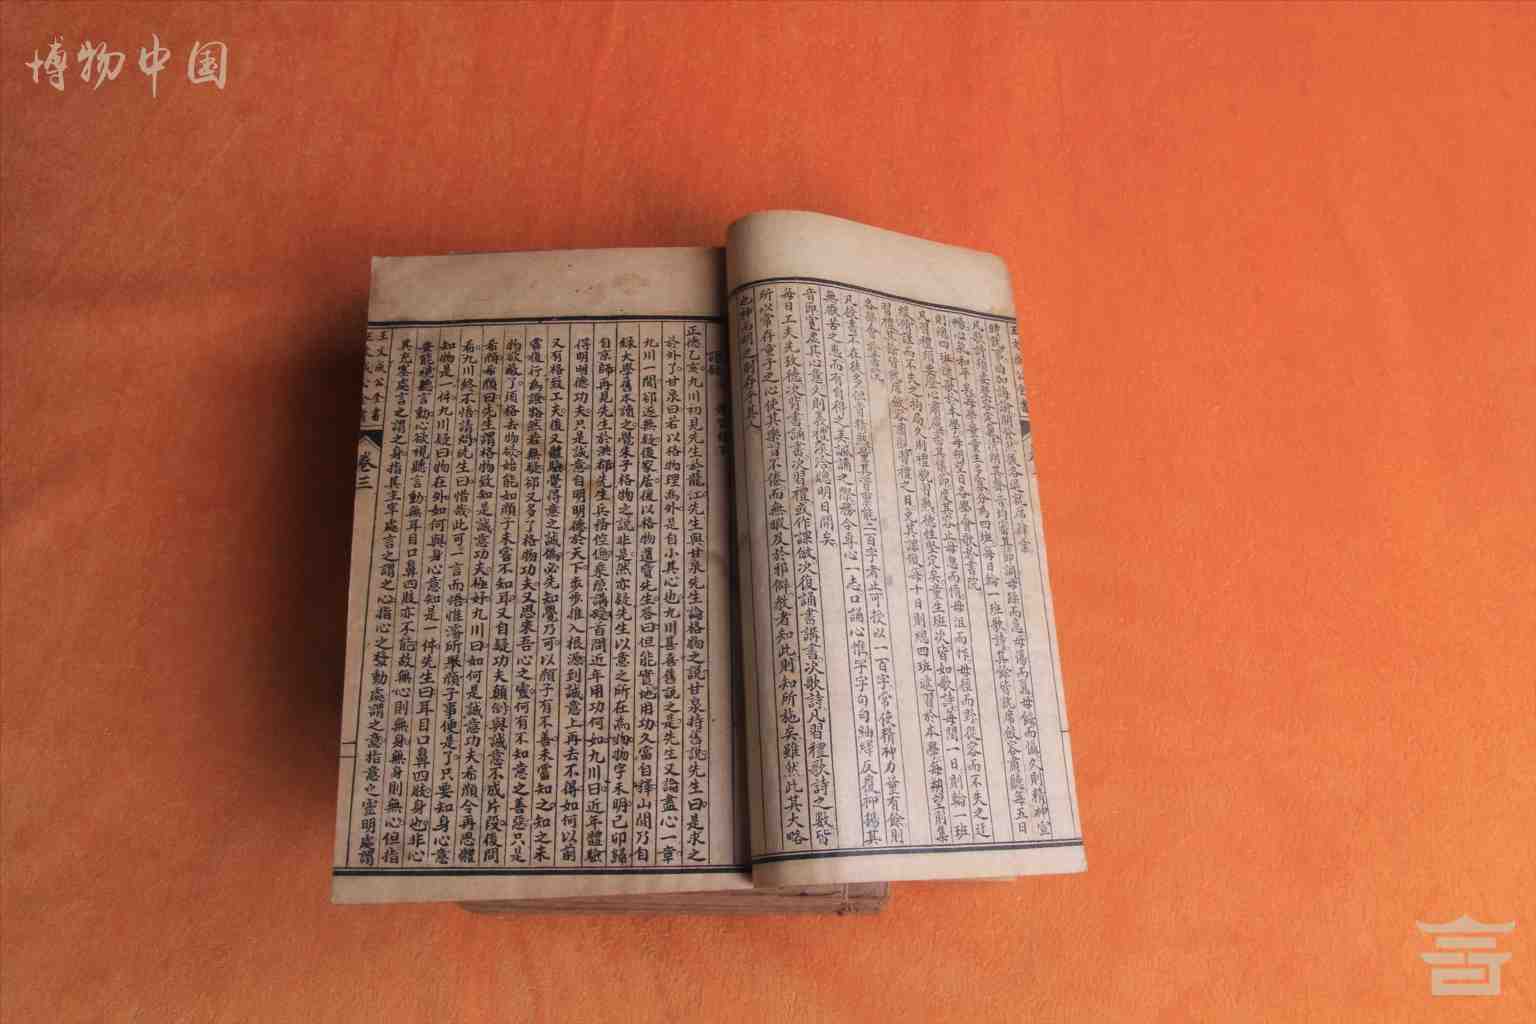 博物中国
時就事曲加誨諭開發然後各退就席肄業
凡歌詩須要整容定氣清朗其聲音均審其節調毋躁而急毋蕩而囂毋餒而懾久則精神宣
暢心氣和平矣每學量童生多寡分為四班每日輪一班歌詩其餘皆就席斂容肅聽每五日
則總四班遞歌於本學每朔望日各學會歌於書院
凡習禮須要澄心肅慮審其儀節度其容止毋忽而惰毋沮而怍毋徑而野從容而不失之迂
緩修謹而不失之拘局久則禮貌習熟德性堅定矣童生班次皆如歌詩每間一日則輪一班
習禮其餘皆就席斂容肅觀習禮之日免其課倣每十日則總四班遞習於本學每朔望則集
各學會習於書院
凡授書不在徒多但貴精熟量其資稟能二百字者止可授以一百字常使精神力量有餘則
無厭苦之患而有自得之美諷誦之際務令專心一志口誦心惟字字句句紬繹反覆抑揚其
音節寬虛其心意久則義禮浹洽聰明日開矣
每日工夫先考德次背書誦書次習禮或作課倣次復誦書講書次歌詩凡習禮歌詩之數皆
所以常存童子之心使其樂習不倦而無暇及於邪僻教者知此則知所施矣雖然此其大略
也神而明之則存乎其人
正德乙亥九川初見先生於龍江先生與甘泉先生論格物之說甘泉持舊說先生曰是求之
於外了甘泉曰若以格物理為外是自小其心也九川甚喜舊說之是先生又論盡心一章
九川一聞卻遂無疑後家居復以格物遺質先生答曰但能實地用功久當自釋山間乃自
錄大學舊本讀之覺朱子格物之說非是然亦疑先生以意之所在為物物字未明己卯歸
自京師再見先生於洪都先生兵務倥傯乘隙講授首問近年用功何如九川曰近年體驗
得明明德功夫只是誠意自明明德於天下步步推入根源到誠意上再去不得如何以前
又有格致工夫後又體驗覺得意之誠偽必先知覺乃可以顏子有不善未嘗知之知之未
嘗復行為證豁然若無疑卻又多了格物功夫又思來吾心之靈何有不知意之善惡只是
物欲蔽了須格去物欲始能如顏子未嘗不知耳又自疑功夫顛倒與誠意不成片段後問
希顏希顏曰先生謂格物致知是誠意功夫極好九川曰如何是誠意功夫希顏令再思體
看九川終不悟請問先生曰惜哉此可一言而悟惟濬所舉顏子事便是了只要知身心意
知物是一件九川疑曰物在外如何與身心意知是一件先生曰耳目口鼻四肢身也非心
安能視聽言動心欲視聽言動無耳目口鼻四肢亦不能故無心則無身無身則無心但指
其充塞處言之謂之身指其主宰處言之謂之心指心之發動處謂之意指意之靈明處謂
王文成公全書 卷三